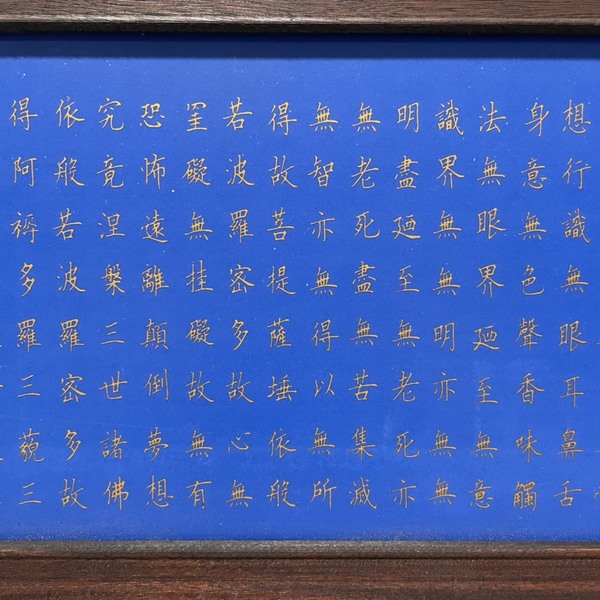 想行識無眼耳鼻舌
身意無色聲香味觸
法無眼界廼至無意
識界無無明亦無無
明盡廼至無老死亦
無老死盡無苦集滅
無智亦無得以無所
得故菩提薩埵依般
若波羅密多故心無
罣礙無挂礙故無有
恐怖遠離顛倒夢想
究竟涅槃三世諸佛
依般若波羅密多故
得阿耨多羅三藐三